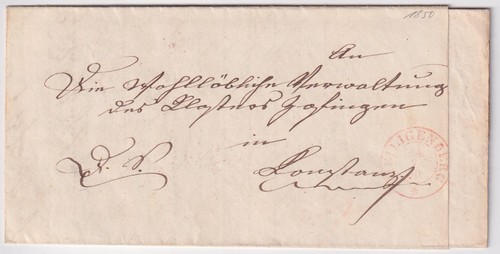 1850
An
Die Wohllöbliche Verwaltung
des Klosters Zofingen
in
D. S.
Konstanz
HEILIGENBERG